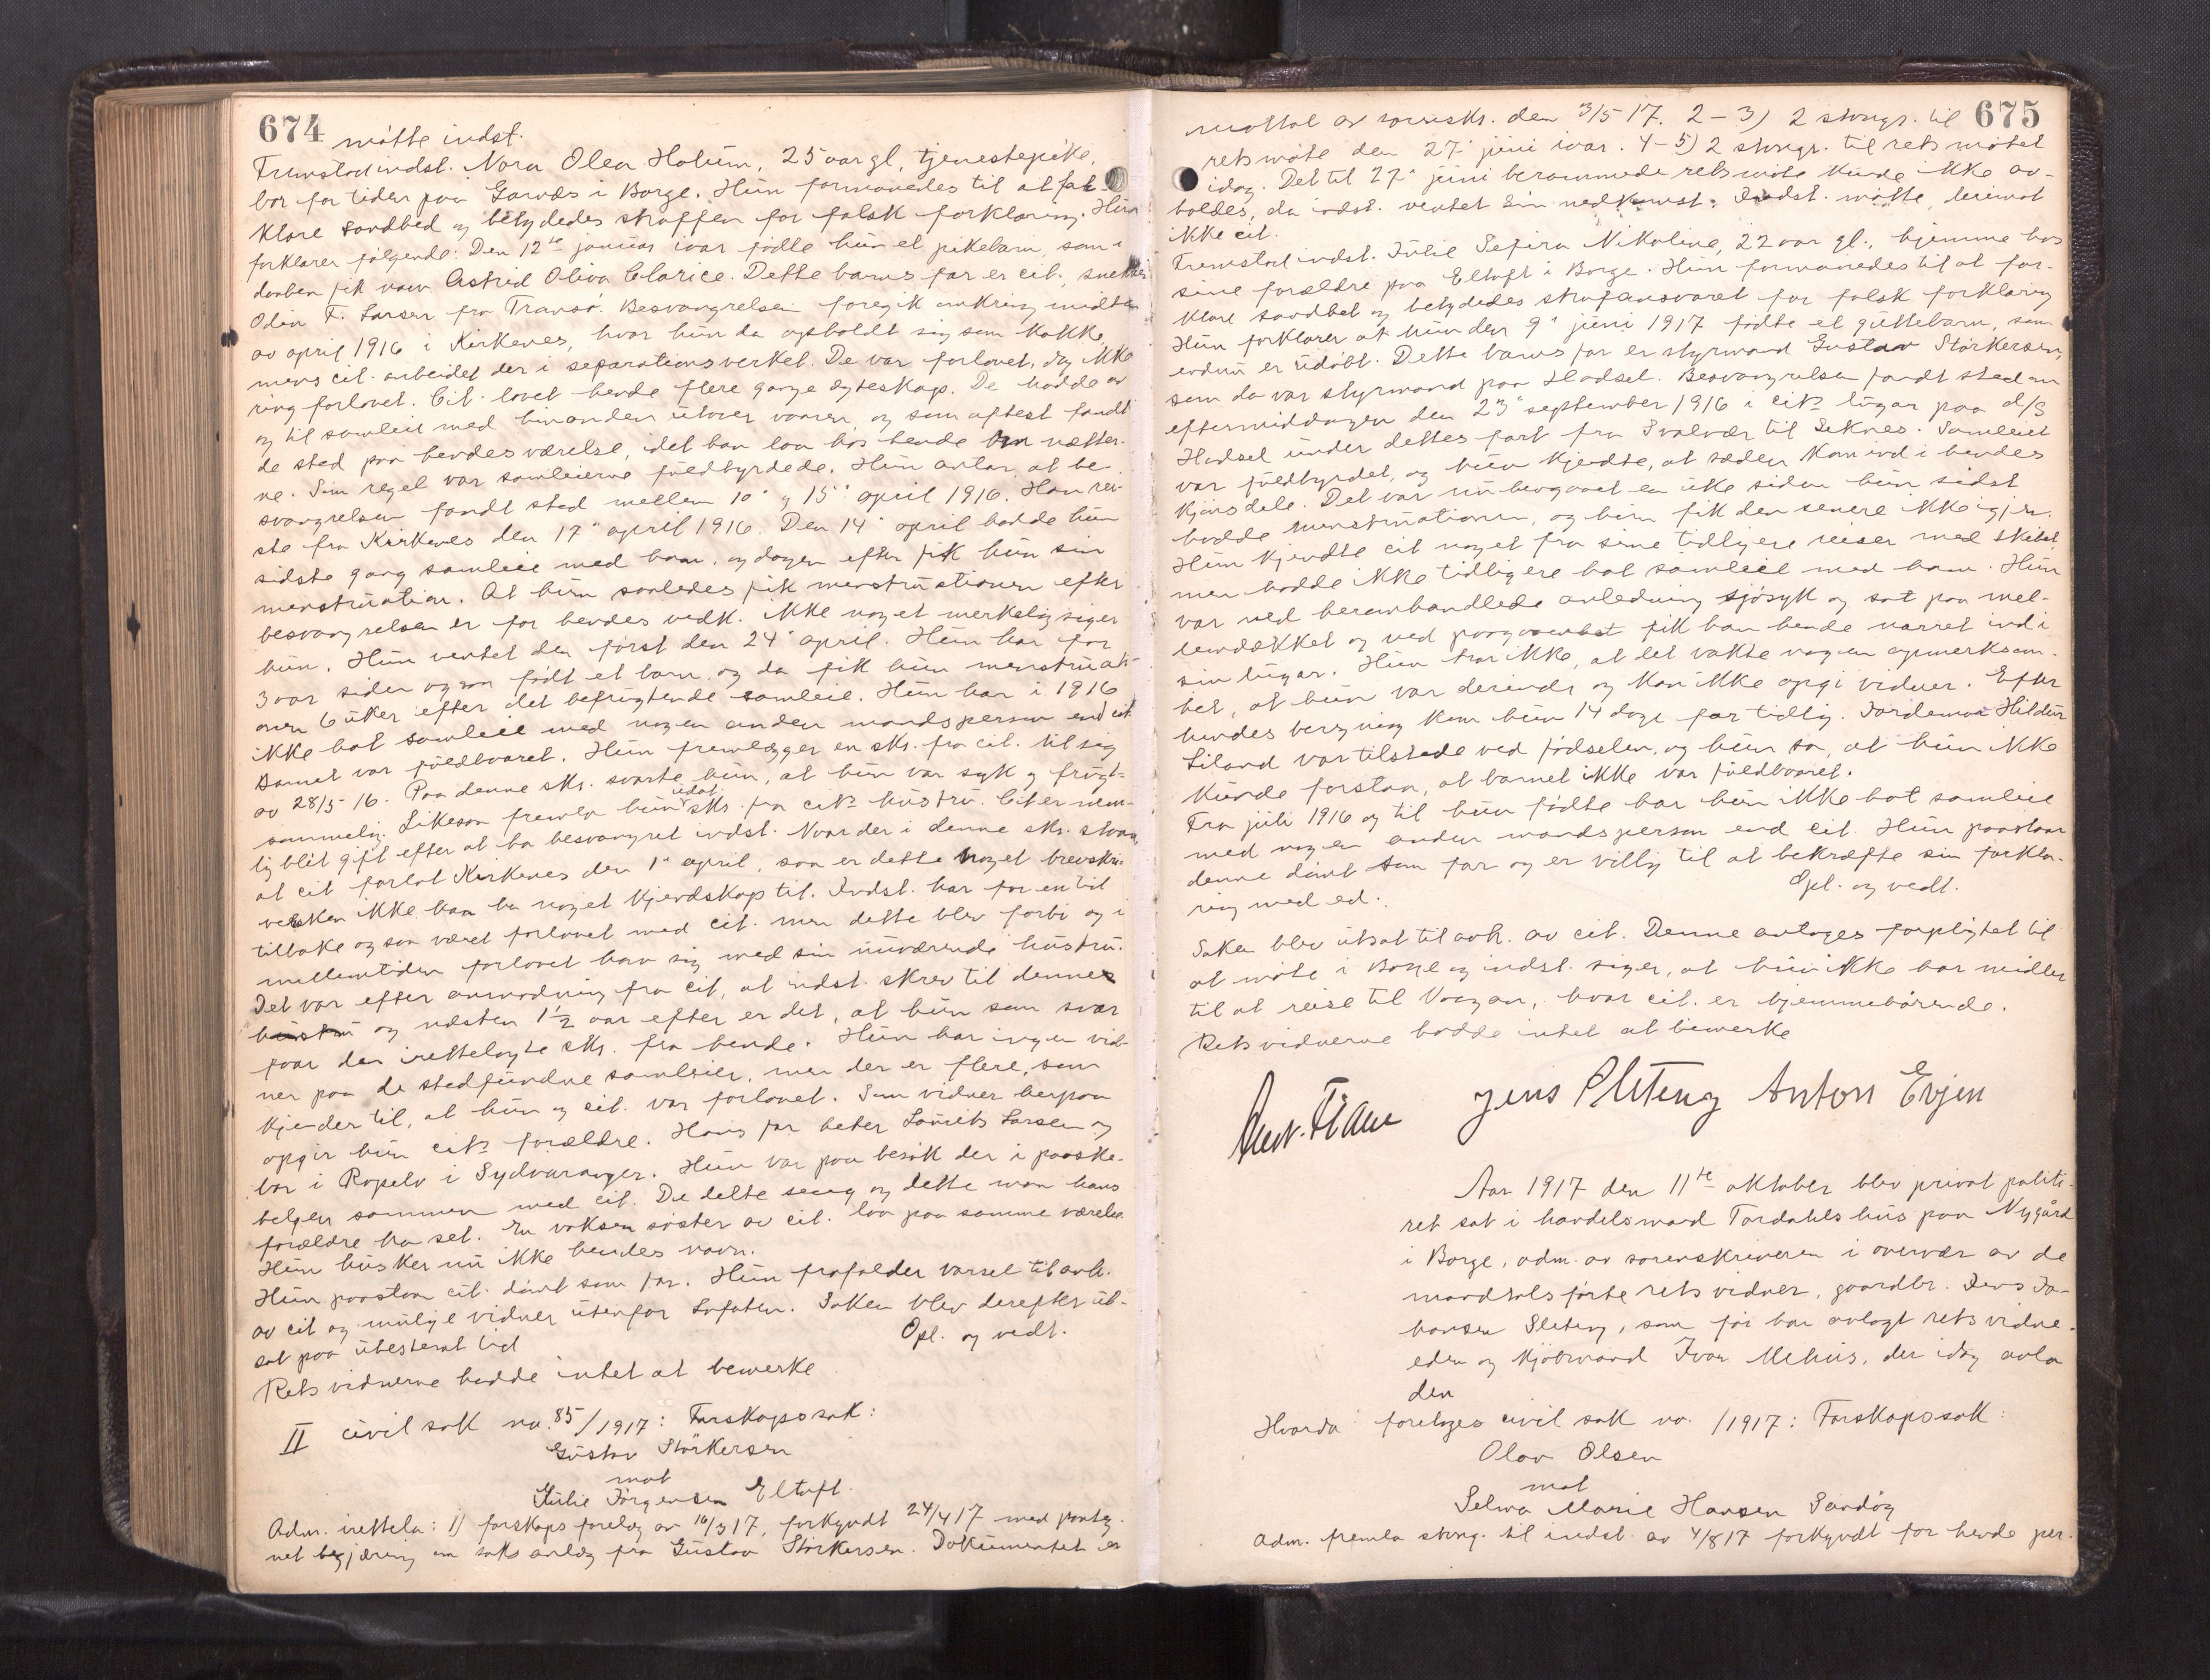 674
møtte indst.
Fremstod indst. Nora Olea Holum, 25 aar gl, tjenestepike,
bor for tiden paa Garnæs i Borge. Hun formanedes til at for-
klare sandhed og betydedes straffen for falsk forklaring. Hun
forklarer følgende: Den 12te januar ivar fødte hun et pikebarn, som i
daaben fik navn Astrid Oliva Clarice. Dette barns far er cit., snekker
Odin F. Larsen fra Tromsø. Besvangrelsen foregik omkring midten
av april 1916 i Kirkenes, hvor hun da opholdt sig som kokke,
mens cit. arbeidet der i separationsverket. De var forlovet, dog ikke
ring forlovet. Cit. lovet hende flere gange egteskap. De hadde av
og til samleie med hinanden utover vaaren og som oftest fandt
de sted paa hendes værelse, idet han laa hos hende om nætter-
ne. Som regel var samleierne fuldbyrdede. Hun antar at be-
svangrelsen fandt sted mellem 10' og 15' april 1916. Han rei-
ste fra Kirkenes den 17' april 1916. Den 14' april hadde hun
sidste gang samleie med ham, og dagen efter fik hun sin
menstruation. At hun saaledes fik menstruationen efter
besvangrelsen er for hendes vedk. ikke noget merkelig siger
hun. Hun ventet den først den 24' april. Hun har for
3 aar siden ogsaa født et barn, og da fik hun menstruati-
onen 6 uker efter det befrugtende samleie. Hun har i 1916
ikke hat samleie med nogen anden mandsperson end cit.
Barnet var fuldbaaret. Hun fremlægger en skr. fra cit. til sig
av 28/5 16. Paa denne skr. svarte hun, at hun var syk og frugt-
sommelig. Likesaa fremla hun udat. skr. fra cits hustru. Cit er nem-
lig blit gift efter at ha besvangret indst. Naar der i denne skr. staar
at cit forlot Kirkenes den 1' april, saa er dette noget brevskri-
versken ikke kan ha noget kjendskap til. Indst. har for en tid
tilbake ogsaa været forlovet med cit. men dette blev forbi og i
mellemtiden forlovet han sig med sin nuværende hustru.
Det var efter anmodning fra cit, at indst. skrev til denne
hustru og næsten 1½ aar efter er det, at hun som svar
faar den irettelagte skr. fra hende. Hun har ingen vid-
ner paa de stedfundne samleier, men der er flere, som
kjender til, at hun og cit. var forlovet. Som vidner herpaa
opgir hun cits forældre. Hans far heter Laurits Larsen og
bor i Ropelv i Sydvaranger. Hun var paa besøk der i paaske-
helgen sammen med cit. De delte seng og dette maa hans
forældre ha set. En voksen søster av cit. laa paa samme værelse.
Hun husker nu ikke hendes navn.
Hun paastaar cit. dømt som far. Hun frafalder varsel til avh.
av cit og mulige vidner utenfor Lofoten. Saken blev derefter ut-
sat paa ubestemt tid
Opl. og vedt.
Retsvidnerne hadde intet at bemerke
II civil sak no. 85/1917: Farskapssak:
Gustav Störkersen
mot
Julie Jørgensen Eltoft.
Adm. irettela: 1) farskapsforelæg av 16/3 17, forkyndt 24/4 17 med paateg-
net begjæring om saksanlæg fra Gustav Störkersen. Dokumentet er
675
mottat av sorenskr. den 3/5 17. 2-3) 2 stevngr. til
retsmøte den 27' juni ivar. 4-5) 2 stevngr. til retsmøtet
idag. Det til 27' juni berammede retsmøte kunde ikke av-
holdes, da indst. ventet sin nedkomst. Indst. møtte, derimot
ikke cit.
Fremstod indst. Julie Sefira Nikoline, 22 aar gl., hjemme hos
sine forældre paa Eltoft i Borge. Hun formanedes til at for-
klare sandhet og betydedes strafansvaret for falsk forklaring
Hun forklarer at hun den 9' juni 1917 fødte et guttebarn, som
endnu er udøbt. Dette barns far er styrmand Gustav Störkersen,
som da var styrmand paa Hadsel. Besvangrelsen fandt sted om
eftermiddagen den 23' september 1916 i cits lugar paa d/s
Hadsel under dettes fart fra Svolvær til Leknes. Samleiet
var fuldbyrdet, og hun kjendte, at sæden kom ind i hendes
kjønsdele. Det var nu hengaaet en uke siden hun sidst
hadde menstruationen, og hun fik den senere ikke igjen.
Hun kjendte cit noget fra sine tidligere reiser med skibet,
men hadde ikke tidligere hat samleie med ham. Hun
var ved heromhandlede anledning sjøsyk og sat paa mel-
lemdækket og ved paagaaenhet fik han hende narret ind i
sin lugar. Hun tror ikke, at det vakte nogen opmerksom-
het, at hun var derinde og kan ikke opgi vidner. Efter
hendes beregning kom hun 14 dage for tidlig. Jordemor Hildur
Liland var tilstede ved fødselen, og hun sa, at hun ikke
kunde forstaa, at barnet ikke var fuldbaaret.
Fra juli 1916 og til hun fødte har hun ikke hat samleie
med nogen anden mandsperson end cit. Hun paastaar
denne dømt som far og er villig til at bekræfte sin forkla-
ring med ed.
Opl. og vedt.
Saken blev utsat til avh. av cit. Denne antoges forpligtet til
at møte i Borge og indst. siger, at hun ikke har midler
til at reise til Vaagan, hvor cit. er hjemmehørende.
Retsvidnerne hadde intet at bemerke
Jens Sleteng Anton Evjen
Aar 1917 den 11te oktober blev privat politi-
ret sat i handelsmand Tordahls hus paa Nygård
i Borge, adm. av sorenskriveren i overvær av de
mandtalsførte retsvidner, gaardbr. Jens Jo-
hansen Sleteng, som før har avlagt retsvidne-
eden og kjøbmand Ivar Mehus, der idag avla
den
Hvorda foretoges civil sak no. /1917: Farskapssak:
Olav Olsen
mot
Selma Marie Hansen Sandøy
Adm. fremla stevng. til indst. av 4/8 17 forkyndt for hende per-